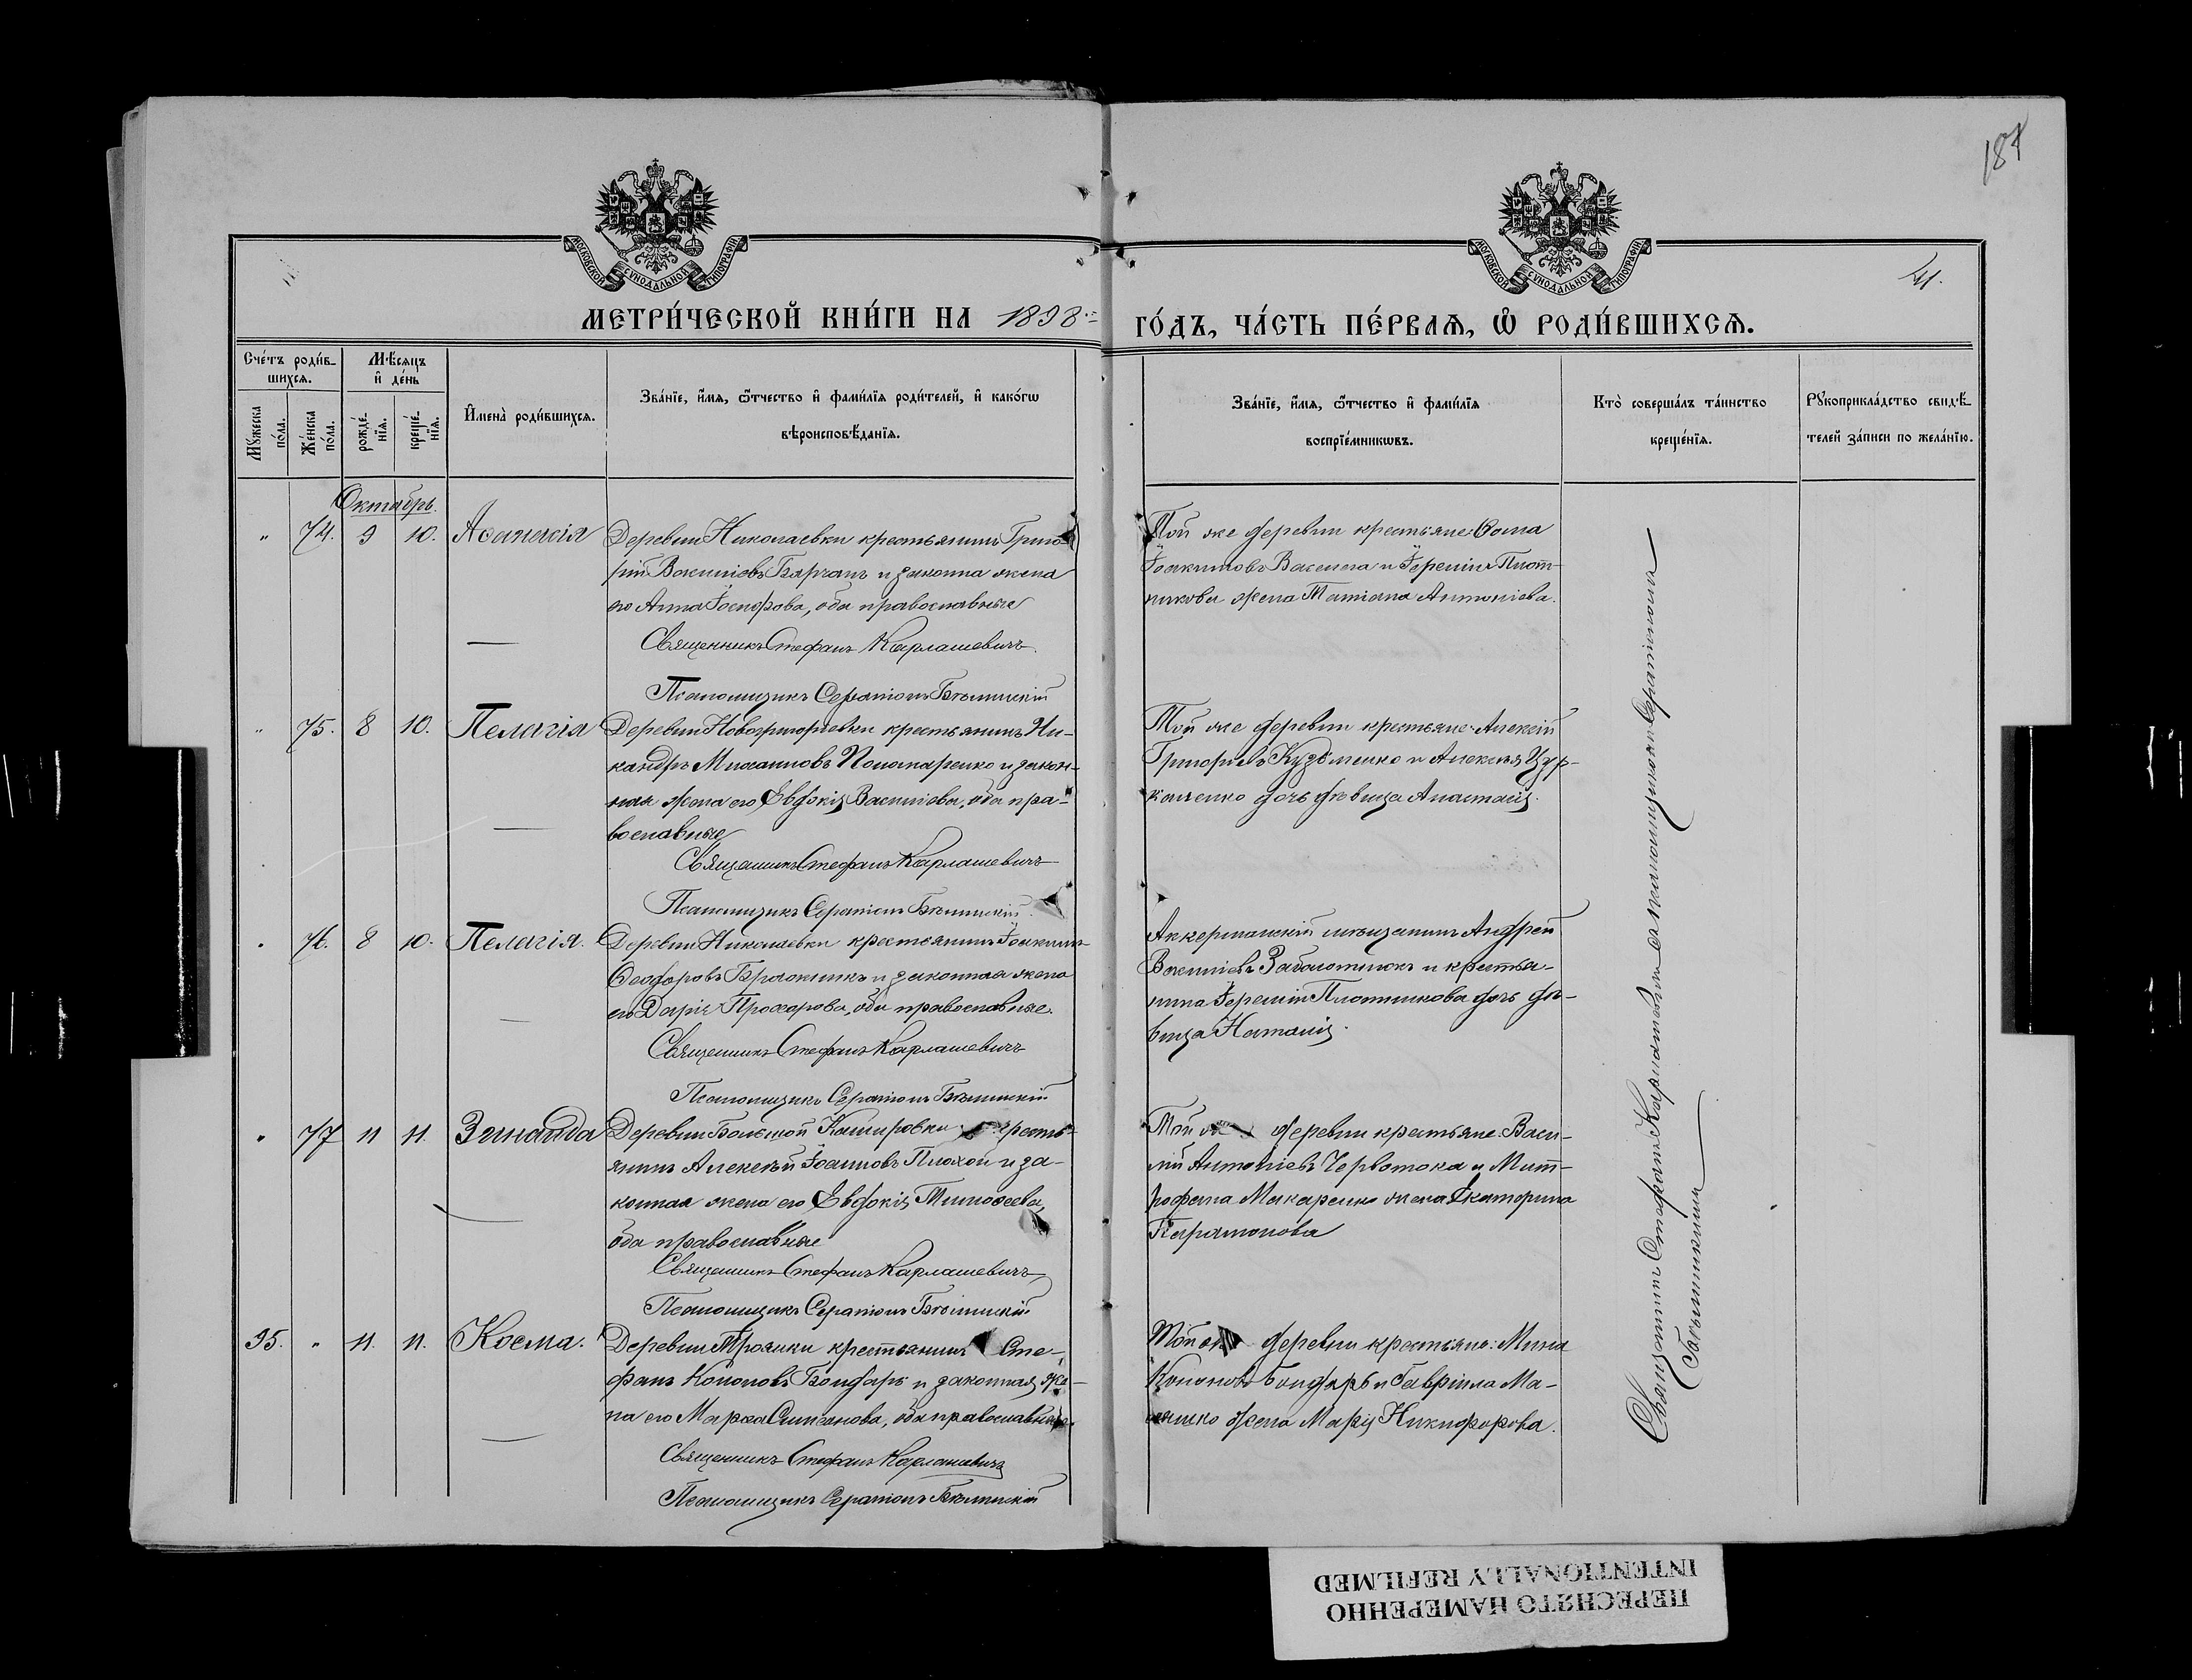 187
41.
МОСКОВСКОЙ СѴНОДАЛЬНОЙ ТИПОГРАФІИ
МОСКОВСКОЙ СѴНОДАЛЬНОЙ ТИПОГРАФІИ
МЕТРИ́ЧЕСКОЙ КНИ́ГИ НА 1898
ГО́ДЪ, ЧА́СТЬ ПЕ́РВАѦ, Ѡ҆ РОДИ́ВШИХСѦ.
Сче́тъ роди́в-
шихсѧ.
Мꙋ́жеска
по́ла.
Же́нска
по́ла.
Мѣ́сѧцъ
и҆ де́нь
рожде́-
нїѧ.
креще́-
нїѧ.
И҆мена̀ роди́вшихсѧ.
Зва́нїе, и҆́мѧ, ѻ҆́тчество и҆ фами́лїѧ роди́телей, и҆ како́гѡ
вѣроисповѣ́данїѧ.
Зва́нїе, и҆́мѧ, ѻ҆́тчество и҆ фами́лїѧ
воспрїе́мникѡвъ.
Кто̀ соверша́лъ та́инство
креще́нїѧ.
Рꙋкоприкла́дство свидѣ́-
телей за́писи по жела́нїю.
Октябрь.
" 74. 9 10. Аѳанасія
Деревни Николаевки крестьянинъ Григо-
рій Василіевъ и законна жена
его Анна Іосифова, оба православные
Священникъ Стефанъ Карлашевичъ.
Псаломщикъ Серапіонъ
Той же деревни крестьяне: Ѳома
Іоакимовъ Василега и Іереміи Плот-
никова жена Татіана Антоніева.
" 75. 8 10. Пелагія
Деревни Новогригорьевки крестьянинъ Ни-
кандръ Михаиловъ Пономаренко и закон-
ная жена его Евдокія Василіева, оба пра-
вославные
Священникъ Стефанъ Карлашевичъ
Псаломщикъ Серапіонъ
Той же деревни крестьяне: Алексій
Григорьевъ Кузьменко и Алексія Цур-
каленко дочь дѣвица Анастасія.
" 76. 8 10. Пелагія.
Деревни Николаевки крестьянинъ Іоакимъ
Ѳеодоровъ Бражникъ и законная жена
его Дарія Прохорова, оба православные.
Священникъ Стефанъ Карлашевичъ
Псаломщикъ Серапіонъ
Аккерманскій мѣщанинъ Андрей
Василіевъ Заболотнюкъ и крестья-
нина Іереміи Плотникова дочь дѣ-
вица Наталія.
" 77 11 11. Зинаида
Деревни Большой Кашировки кресть-
янинъ Алексѣй Іоанновъ Плохой и за-
конная жена его Евдокія Тимоѳеева,
оба православные
Священникъ Стефанъ Карлашевичъ
Псаломщикъ Серапіонъ
Той же деревни крестьяне: Васи-
лій Антоніевъ Червотока и Мит-
рофана Макаренко жена Екатерина
Парамонова
95. " 11. 11. Косма.
Деревни Трояпки крестьянинъ Сте-
фанъ Кононовъ Бондарь и законная же-
на его Марѳа Симеонова, оба православные.
Священникъ Стефанъ Карлашевичъ
Псаломщикъ Серапіонъ
Той же деревни крестьяне: Мина
Кононовъ Бондарь и Гавріила Ма-
жена Марія Никифорова.
Священникъ Стефанъ Карлашевичъ съ псаломщикомъ Серапіономъ
ПЕРЕСНЯТО НАМЕРЕННО
INTENTIONALLY REFILMED